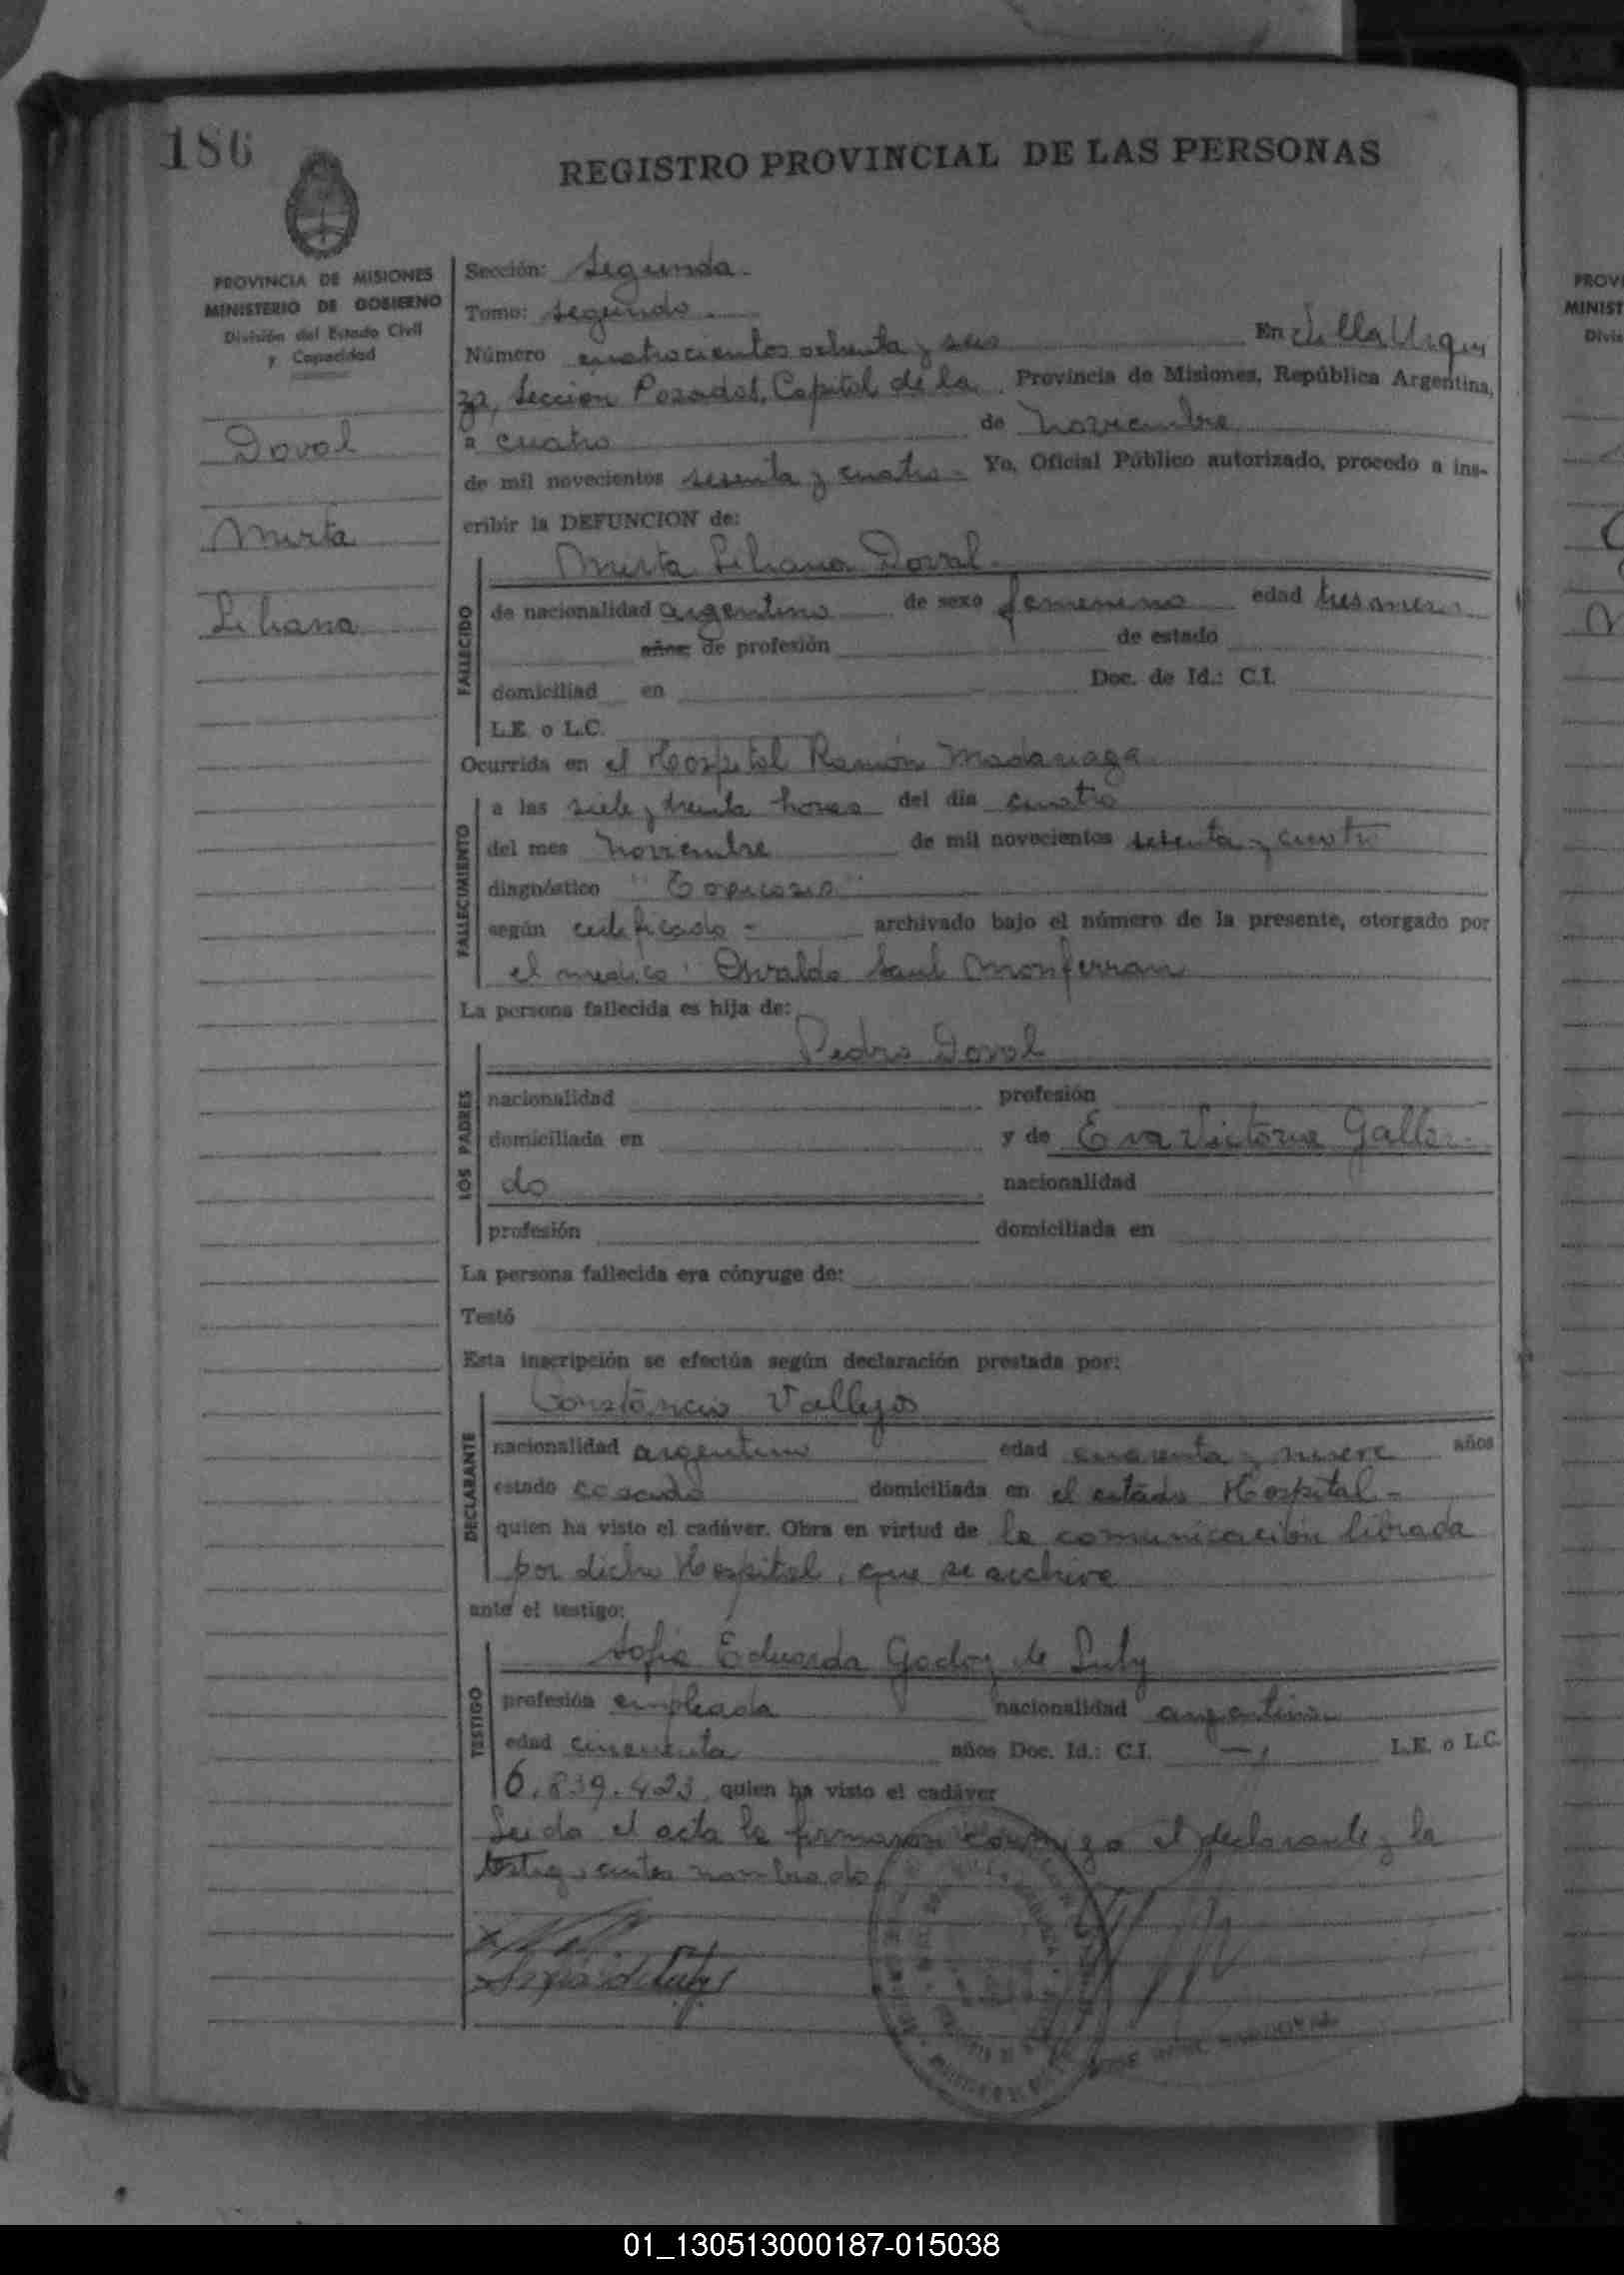 186
REGISTRO PROVINCIAL DE LAS PERSONAS
PROVINCIA DE MISIONES
MINISTERIO DE GOBIERNO
División del Estado Civil
y Capacidad
Doval
Mirta
Liliana
Sección: Segunda.
Tomo: segundo
Número cuatrocientos ochenta y seis En Villa Urqui
za, Sección Posadas, Capital de la Provincia de Misiones, República Argentina,
a cuatro de Noviembre
de mil novecientos sesenta y cuatro - Yo, Oficial Público autorizado, procedo a ins-
cribir la DEFUNCION de:
Mirta Liliana Doval
FALLECIDO
de nacionalidad argentina de sexo femenino edad tres meses
años; de profesión de estado
domiciliad en Doc. de Id.: C.I.
L.E. o L.C.
Ocurrida en el Hospital Ramón Madariaga
FALLECIMIENTO
a las siete y treinta horas del día cuatro
del mes Noviembre de mil novecientos sesenta y cuatro
diagnóstico "Toxicosis"
según certificado - archivado bajo el número de la presente, otorgado por
el médico: Osvaldo Saul Monferran
La persona fallecida es hija de:
LOS PADRES
Pedro Doval
nacionalidad profesión
domiciliada en y de Eva Victoria Gallar-
do nacionalidad
profesión domiciliada en
La persona fallecida era cónyuge de:
Testó
Esta inscripción se efectúa según declaración prestada por:
DECLARANTE
Constancio Vallejos
nacionalidad argentino edad cuarenta y nueve años
estado casado domiciliada en el citado Hospital -
quien ha visto el cadáver. Obra en virtud de la comunicación librada
por dicho Hospital, que se archiva
ante el testigo:
TESTIGO
Sofia Eduarda Godoy de Luby
profesión empleada nacionalidad argentina
edad cincuenta años Doc. Id.: C.I. - L.E. o L.C.
6.839.423, quien ha visto el cadáver
Leida el acta la firmaron conmigo el declarante y la
testigo antes nombrado
Sofia de Luby
PROVI
MINIST
Divis
01_130513000187-015038